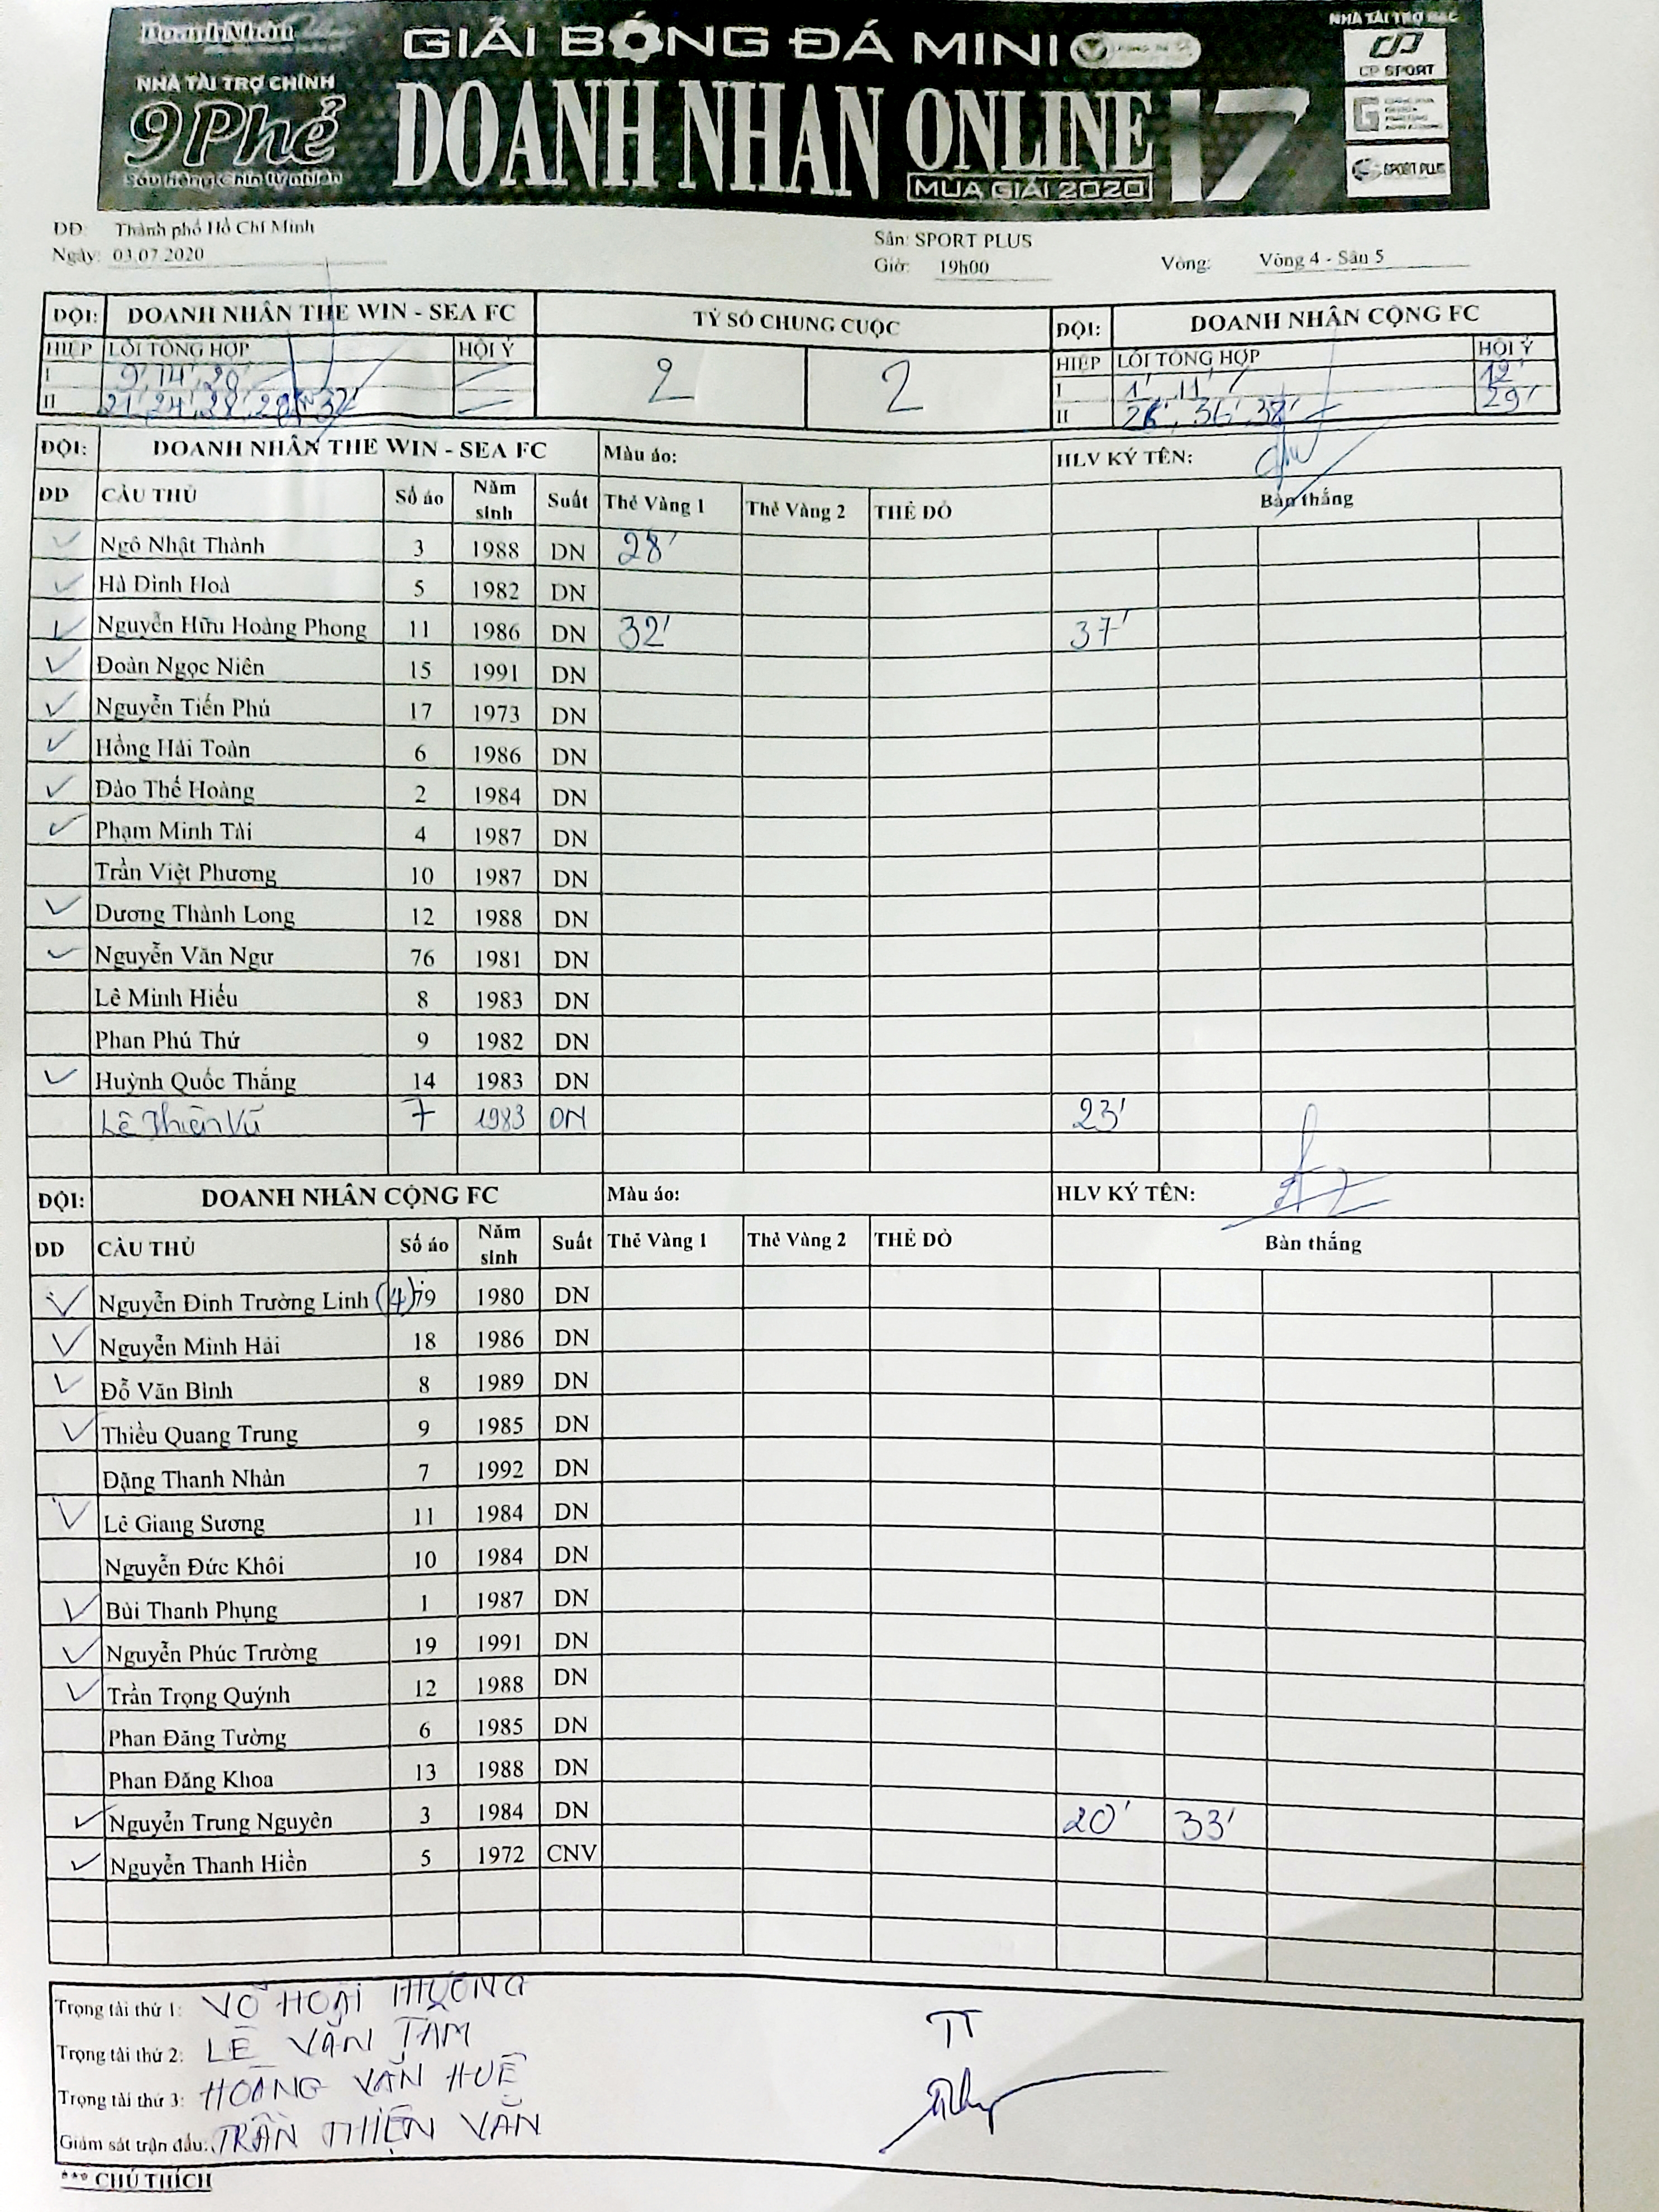 Doanh Nhân
GIẢI BÓNG ĐÁ MINI
NHÀ TÀI TRỢ BẠC
NHÀ TÀI TRỢ CHÍNH
9 Phẻ
Sầu riêng Chín tự nhiên
DOANH NHAN ONLINE 17
MÙA GIẢI 2020
CP SPORT
SPORT PLUS
ĐĐ: Thành phố Hồ Chí Minh
Sân: SPORT PLUS
Ngày: 03.07.2020
Giờ: 19h00
Vòng: Vòng 4 - Sân 5
ĐỘI: DOANH NHÂN THE WIN - SEA FC TỶ SỐ CHUNG CUỘC ĐỘI: DOANH NHÂN CỘNG FC
HIỆP LỖI TỔNG HỢP HỘI Ý 2 2 HIỆP LỖI TỔNG HỢP HỘI Ý
I 9', 14', 20' I 1', 11' 12'
II 21', 24', 28', 28', 32' II 26', 36', 38' 29'
ĐỘI: DOANH NHÂN THE WIN - SEA FC Màu áo: HLV KÝ TÊN:
DD CẦU THỦ Số áo Năm sinh Suất Thẻ Vàng 1 Thẻ Vàng 2 THẺ ĐỎ Bàn thắng
Ngô Nhật Thành 3 1988 DN 28'
Hà Đình Hoà 5 1982 DN
Nguyễn Hữu Hoàng Phong 11 1986 DN 32' 37'
Đoàn Ngọc Niên 15 1991 DN
Nguyễn Tiến Phú 17 1973 DN
Hồng Hải Toàn 6 1986 DN
Đào Thế Hoàng 2 1984 DN
Phạm Minh Tài 4 1987 DN
Trần Việt Phương 10 1987 DN
Dương Thành Long 12 1988 DN
Nguyễn Văn Ngư 76 1981 DN
Lê Minh Hiếu 8 1983 DN
Phan Phú Thứ 9 1982 DN
Huỳnh Quốc Thắng 14 1983 DN
Lê Thiên Vũ 7 1983 DN 23'
ĐỘI: DOANH NHÂN CỘNG FC Màu áo: HLV KÝ TÊN:
DD CẦU THỦ Số áo Năm sinh Suất Thẻ Vàng 1 Thẻ Vàng 2 THẺ ĐỎ Bàn thắng
Nguyễn Đình Trường Linh (4) 79 1980 DN
Nguyễn Minh Hải 18 1986 DN
Đỗ Văn Bình 8 1989 DN
Thiều Quang Trung 9 1985 DN
Đặng Thanh Nhàn 7 1992 DN
Lê Giang Sương 11 1984 DN
Nguyễn Đức Khôi 10 1984 DN
Bùi Thanh Phụng 1 1987 DN
Nguyễn Phúc Trường 19 1991 DN
Trần Trọng Quýnh 12 1988 DN
Phan Đăng Tường 6 1985 DN
Phan Đăng Khoa 13 1988 DN
Nguyễn Trung Nguyên 3 1984 DN 20' 33'
Nguyễn Thanh Hiền 5 1972 CNV
Trọng tài thứ 1: VÕ HOÀI THƯƠNG
Trọng tài thứ 2: LÊ VĂN TÁM
Trọng tài thứ 3: HOÀNG VĂN HUÊ
Giám sát trận đấu: TRẦN THIỆN VĂN
TT
*** CHÚ THÍCH